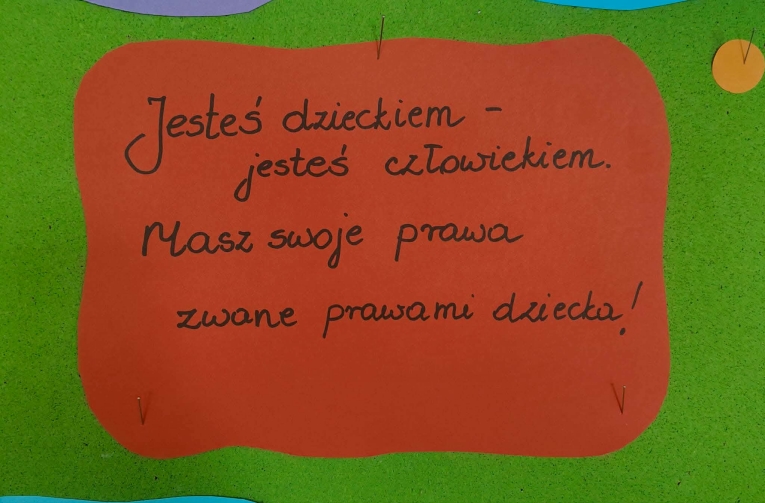 Jesteś dzieckiem -
jesteś człowiekiem.
Masz swoje prawa
zwane prawami dziecka!